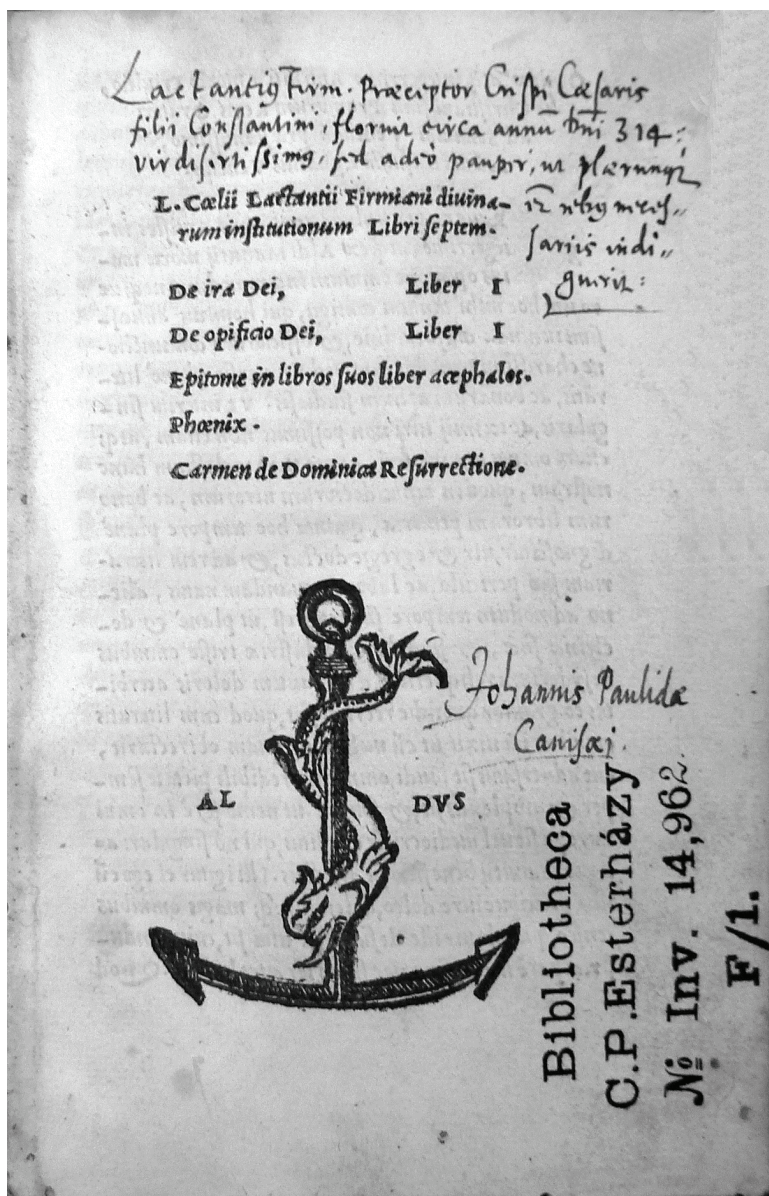 Lactantius Firm. Præceptor Crispi Cæsaris
filii Constantini, floruit circa annū Dn̄i 314:
vir disertissimus, sed adeò pauper, ut plærunq́
etiā rebus neces„
sariis indi„
guerit:
L. Cœlii Lactantii Firmiani diuina-
rum institutionum Libri septem.
De ira Dei, Liber I
De opificio Dei, Liber I
Epitome in libros suos liber acephalos.
Phœnix.
Carmen de Dominica Resurrectione.
AL DVS
Johannis Paulidæ
Canisæi.
Bibliotheca
C.P.Esterházy
№ Inv. 14,962.
F/1.